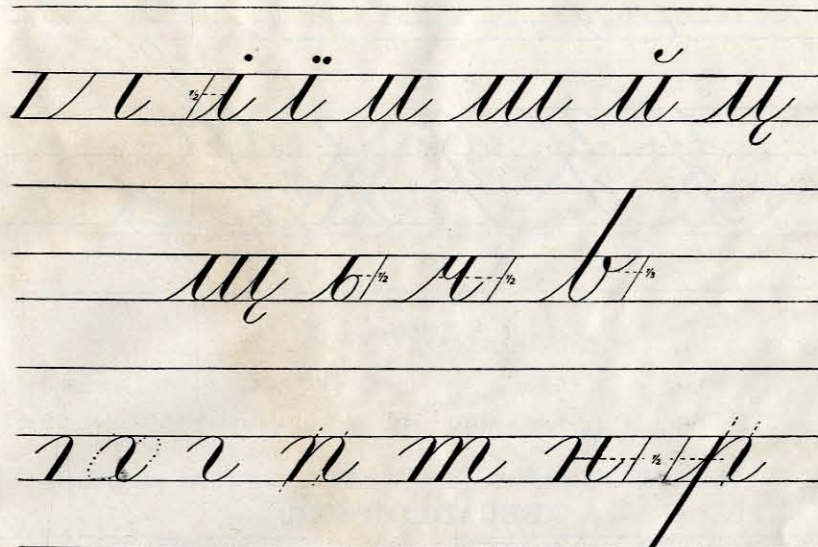 ½ і ї и ш й ц
щ ь ½ ч ½ в ⅓
п т н ½ р